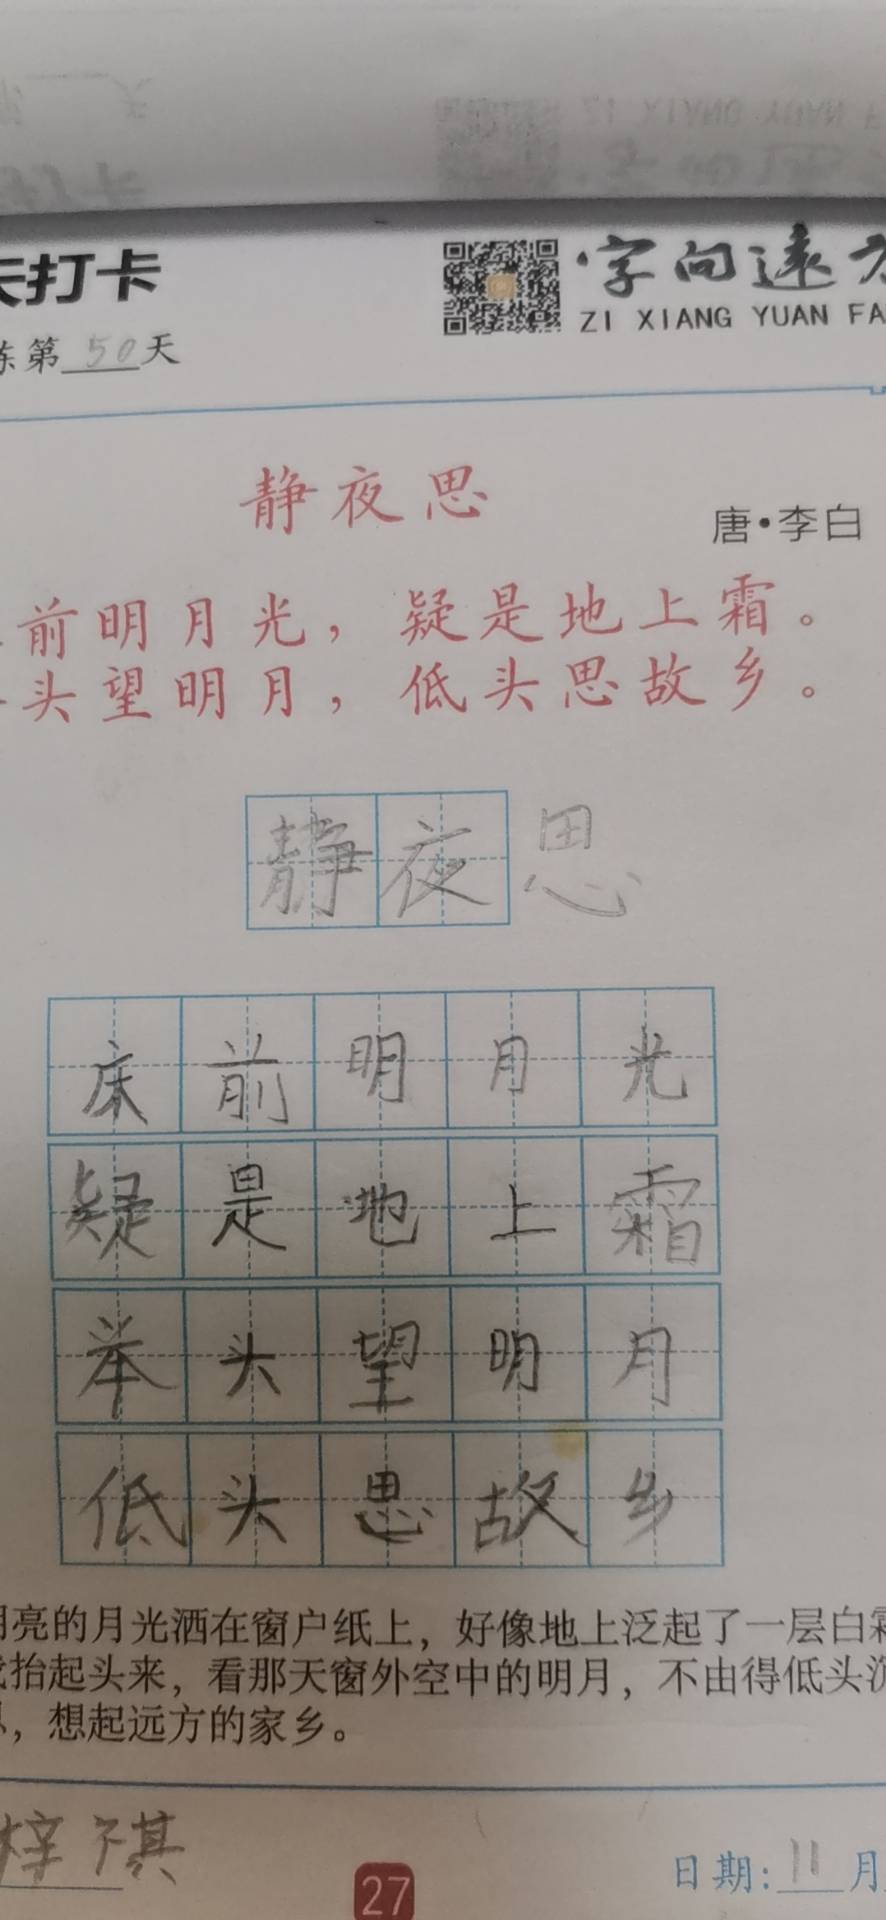 天打卡
字向远方
ZI XIANG YUAN FA
练第50天
静夜思
唐·李白
前明月光，疑是地上霜。
头望明月，低头思故乡。
静夜思
床前明月光
疑是地上霜
举头望明月
低头思故乡
明亮的月光洒在窗户纸上，好像地上泛起了一层白霜
我抬起头来，看那天窗外空中的明月，不由得低头沉
思，想起远方的家乡。
梓祺
27
日期：11月